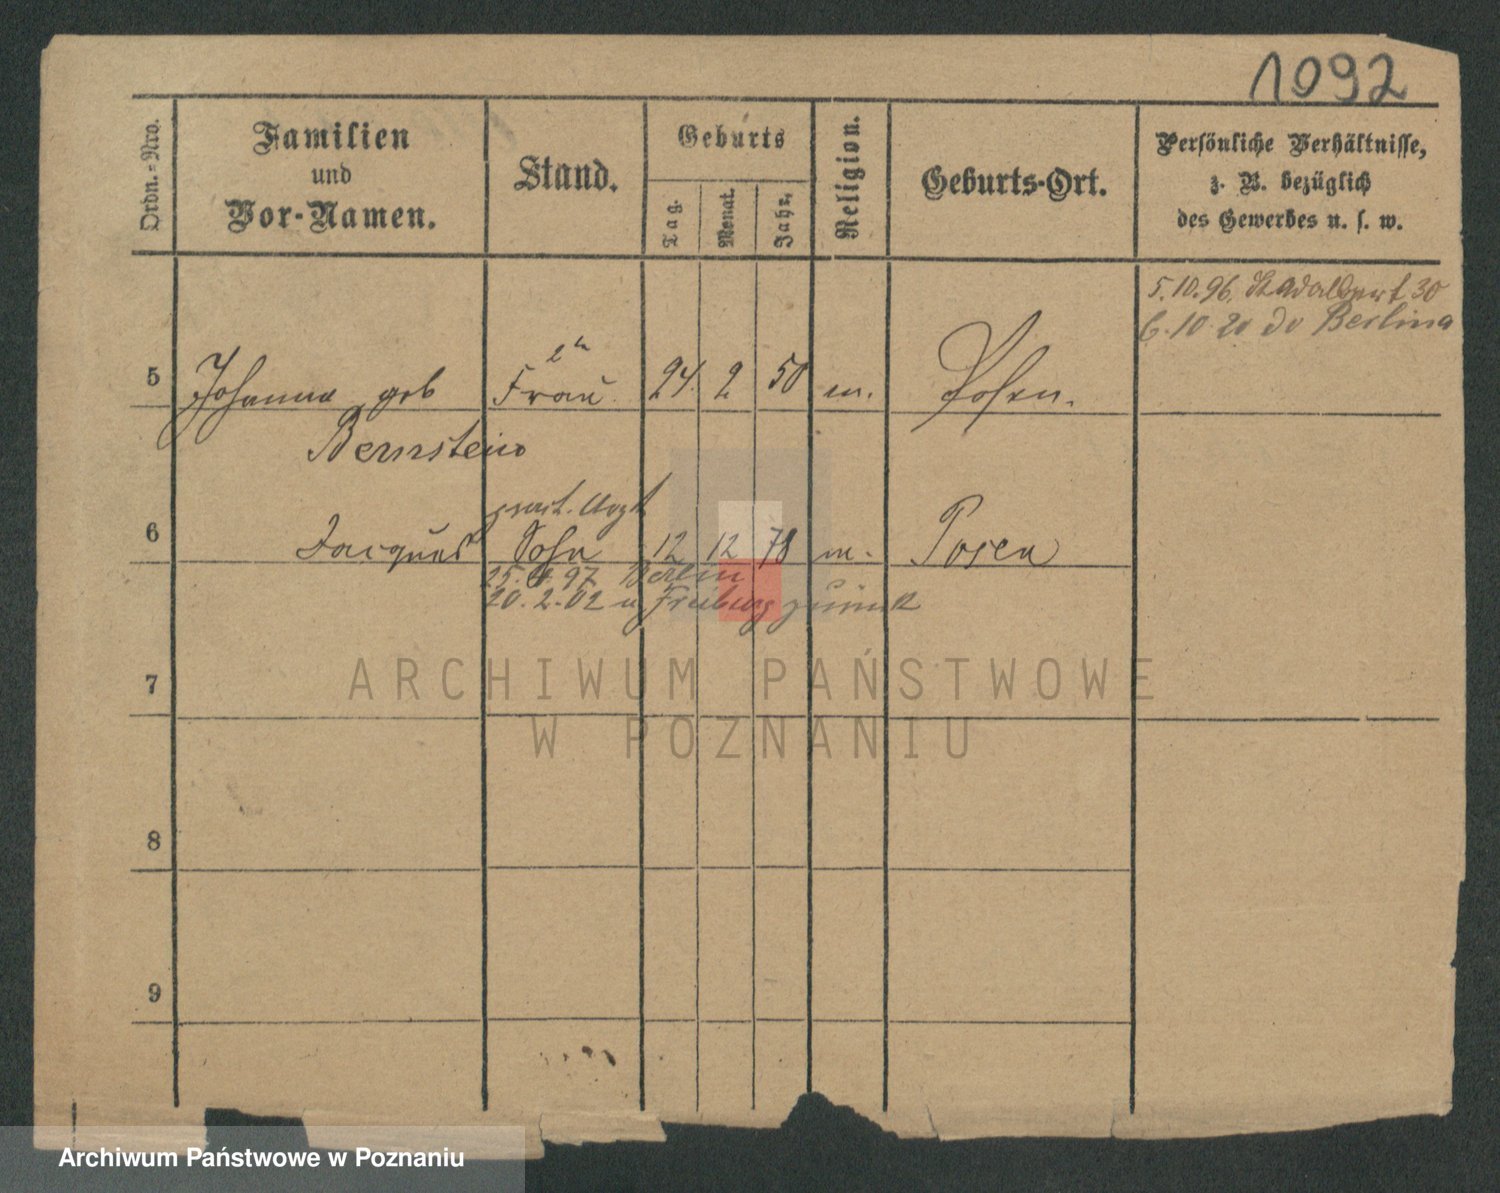 1092
Ordn.-Nro.
Familien
und
Vor-Namen.
Stand.
Geburts
Tag.
Monat.
Jahr.
Religion.
Geburts-Ort.
Persönliche Verhältnisse,
z. B. bezüglich
des Gewerbes u. s. w.
5.10.96. St Adalbert 30
6.10.20 do Berlina
2te
5 Johanna geb Frau 24. 2 50 m. Posen.
Bernstein
pract. Arzt
6 Jacques Sohn 12 12 78 m. Posen
25. 4. 97 Berlin
20. 2. 02 v Freiburg zurück
7
8
9
ARCHIWUM PAŃSTWOWE
W POZNANIU
Archiwum Państwowe w Poznaniu